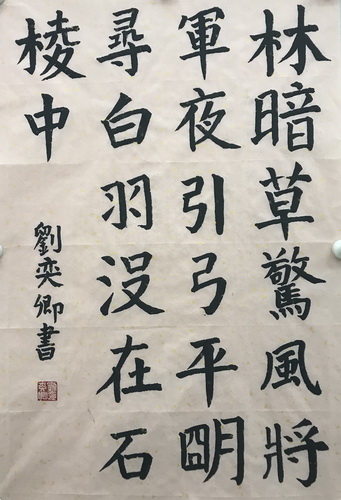 林暗草驚風將
軍夜引弓平明
尋白羽没在石
棱中
劉奕卿書